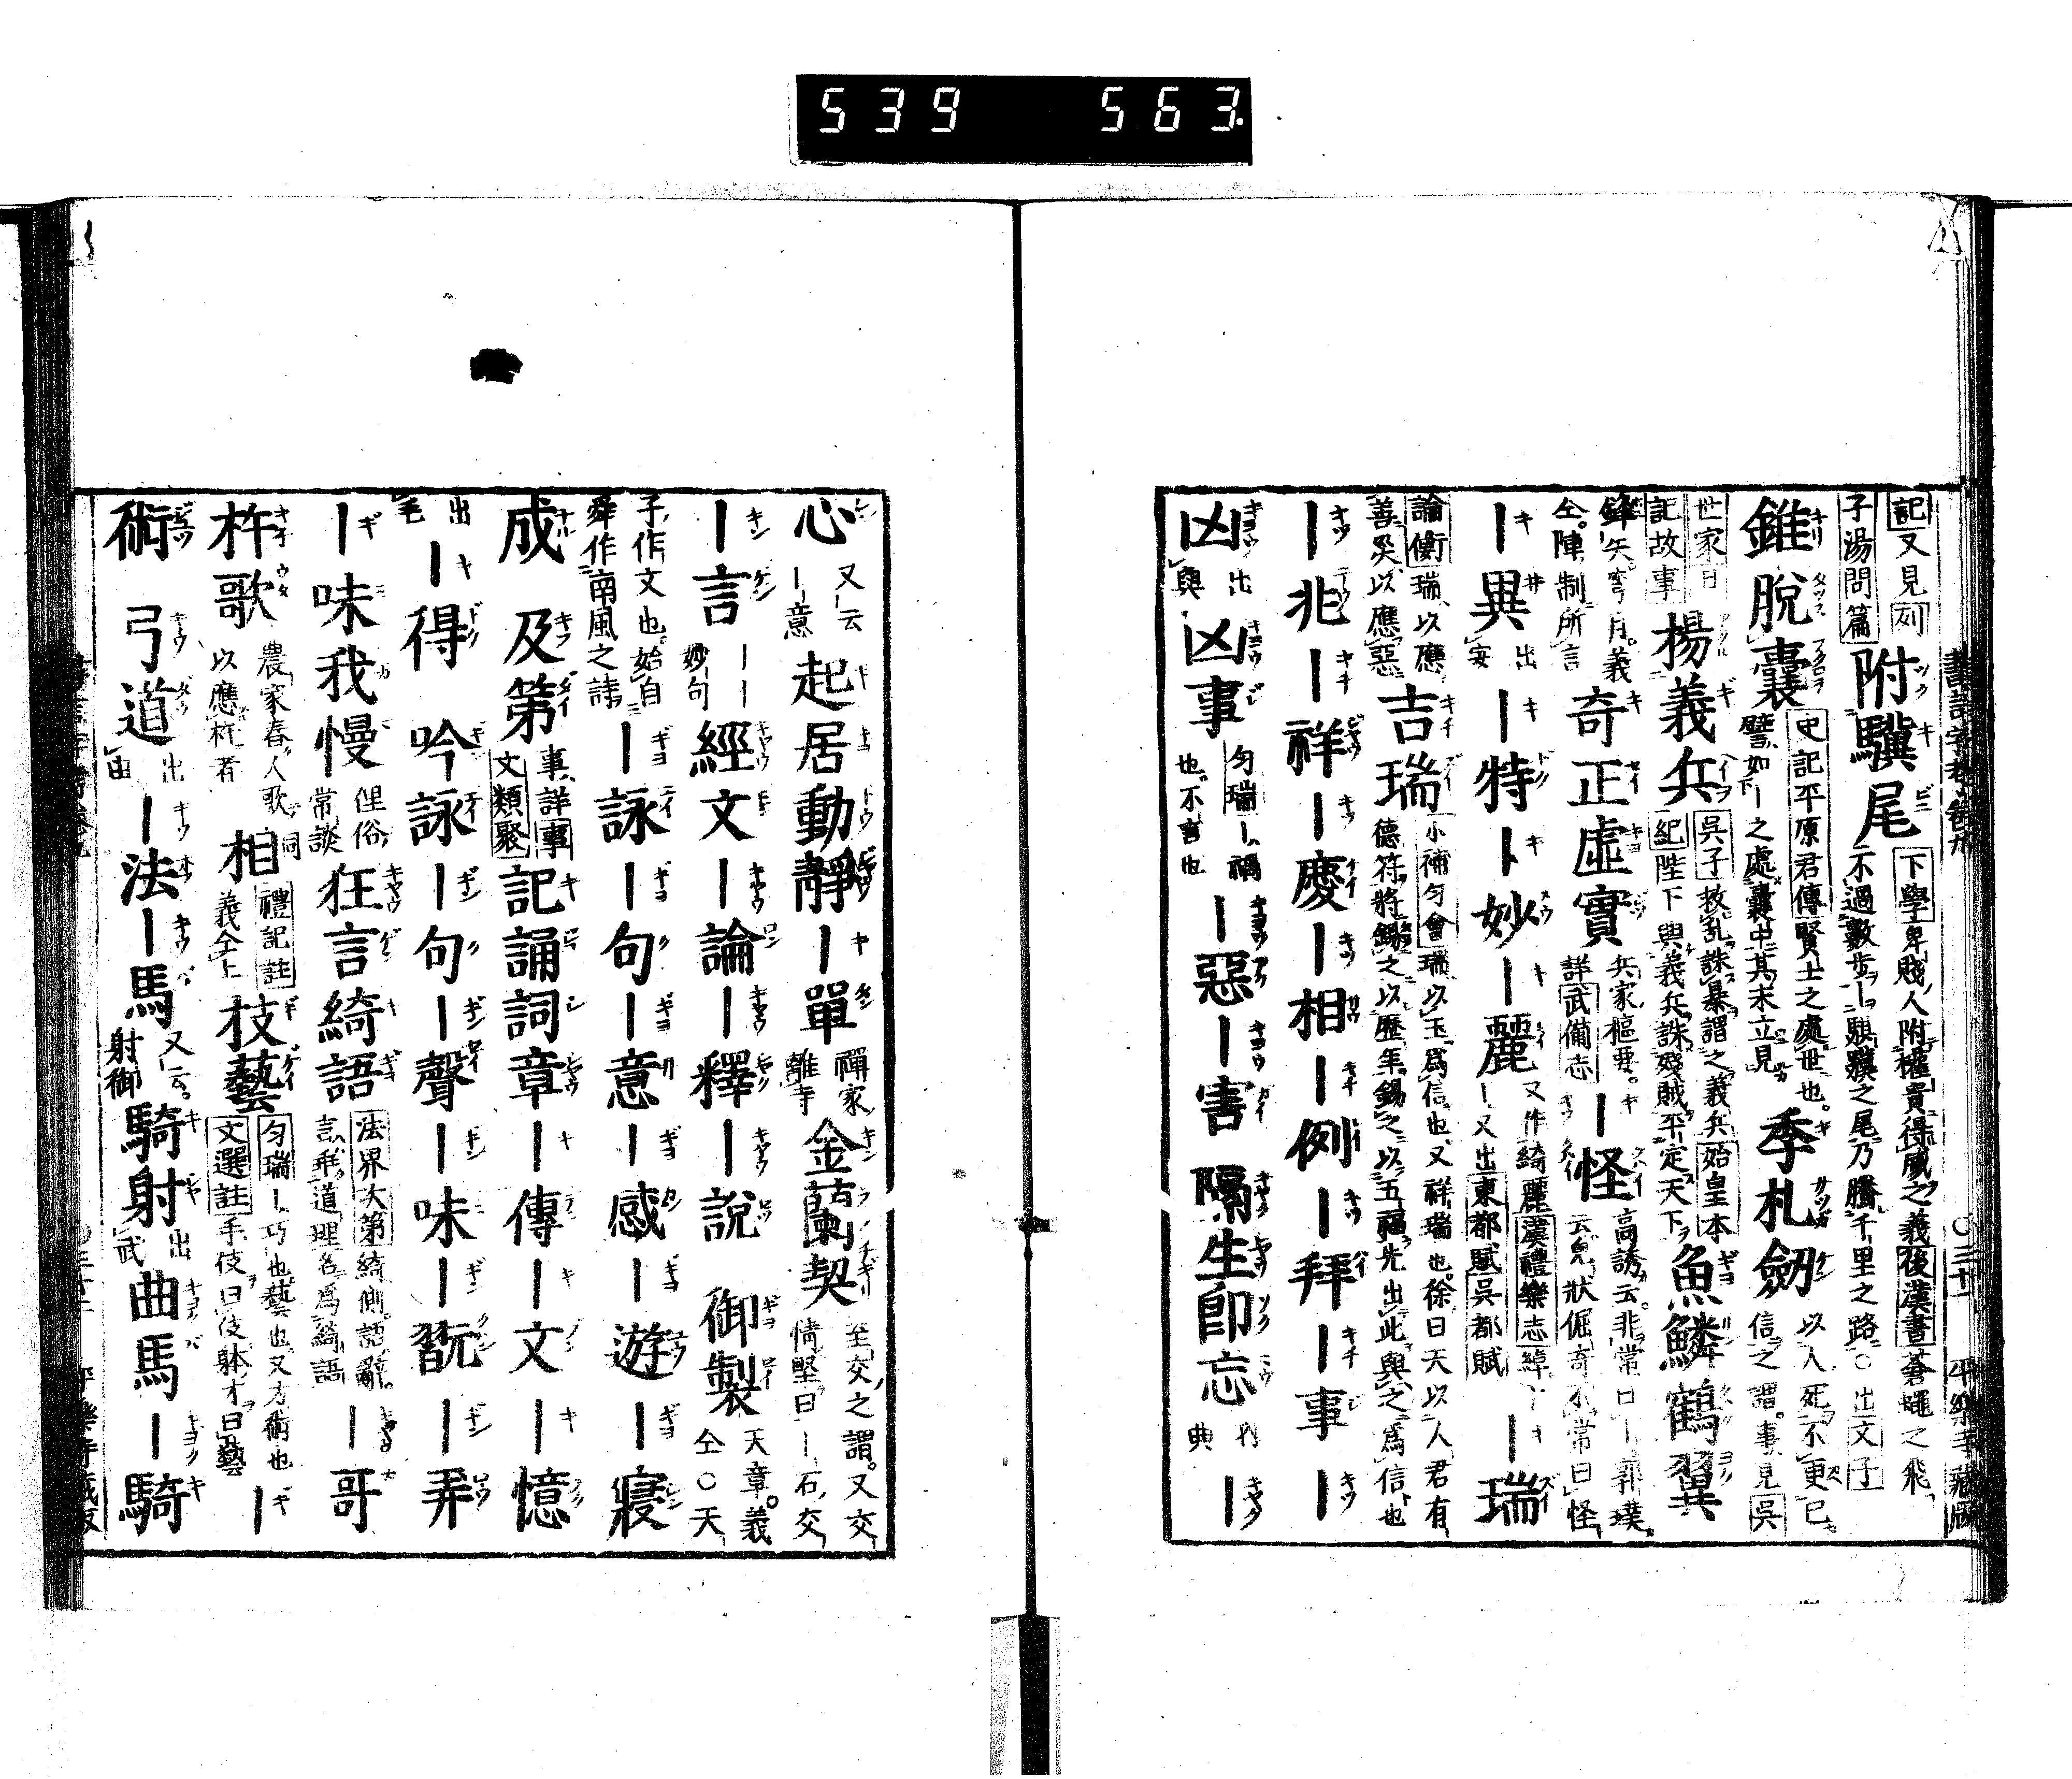 539 563
記又見列子湯問篇 附驥尾 下學卑賤人附權貴得威之義後漢書蒼蠅之飛不過數步一騏驥之尾乃騰千里之路○出文子
錐脫囊 史記平原君傳賢士之處世也譬如下ー之處囊中其末立見 季札劒 以人死不更已信之謂事見吳
世家史記故事 楊義兵 吳子救乱誅暴謂之義兵始皇本紀陛下與義兵誅殘賊平定天下 魚鱗鶴翼
鋒矢彎月義仝陣制所言 奇正虛實 兵家樞要詳武備志 ー怪 高誘云非常曰ー郭璞云皃狀倔奇不常曰怪
ー異 出安 ー特 ー妙 ー麗 又作綺麗漢禮樂志綽ーー又出東都賦吳都賦 ー瑞
論衡瑞以應善災以應惡 吉瑞 小補勻會瑞以玉爲信也又祥瑞也徐曰天以人君有德符將錫之以歷年錫之以五福先出此與之爲信也
ー兆 ー祥 ー慶 ー相 ー例 ー拜 ー事 ー
凶 出與 凶事 勻瑞ー禍也不吉也 ー惡 ー害 隔生即忘 典 ー
心 又云ー意 起居動靜 ー單 禪家離寺 金蘭契 至交之謂又交情堅曰ー石交
ー言 ーー妙句 經文 ー論 ー釋 ー說 御製 天章義仝○天
子作文也始自舜作南風之詩 ー詠 ー句 ー意 ー感 ー遊 ー寢
成 及第 事詳事文類聚 記誦詞章 ー傳 ー文 ー憶
出毛 ー得 吟詠 ー句 ー聲 ー味 ー翫 ー弄
ー味 我慢 俚俗常談 狂言綺語 法界次第綺側語辭言乖道理名爲綺語 ー哥
杵歌 農家舂人歌以應杵者 相 禮記註義仝上 技藝 勻瑞ー巧也藝也又才術也文選註手伎曰伎躰才曰藝 ー
術 弓道 出由 ー法 ー馬 又云射御 騎射 出武 曲馬 ー騎